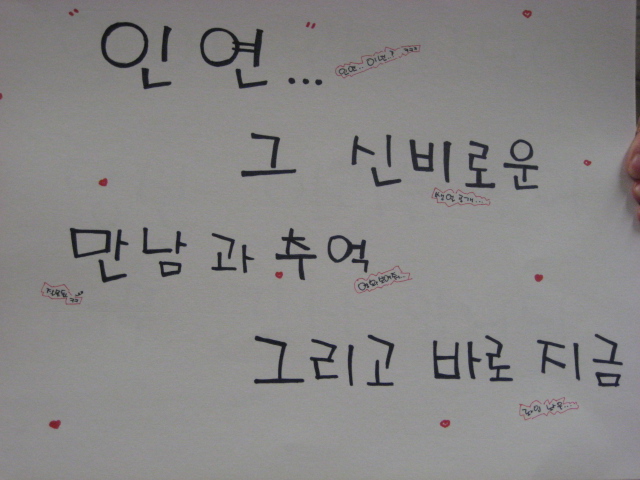 " 인연... "
그 신비로운
만남과 추억
그리고 바로 지금